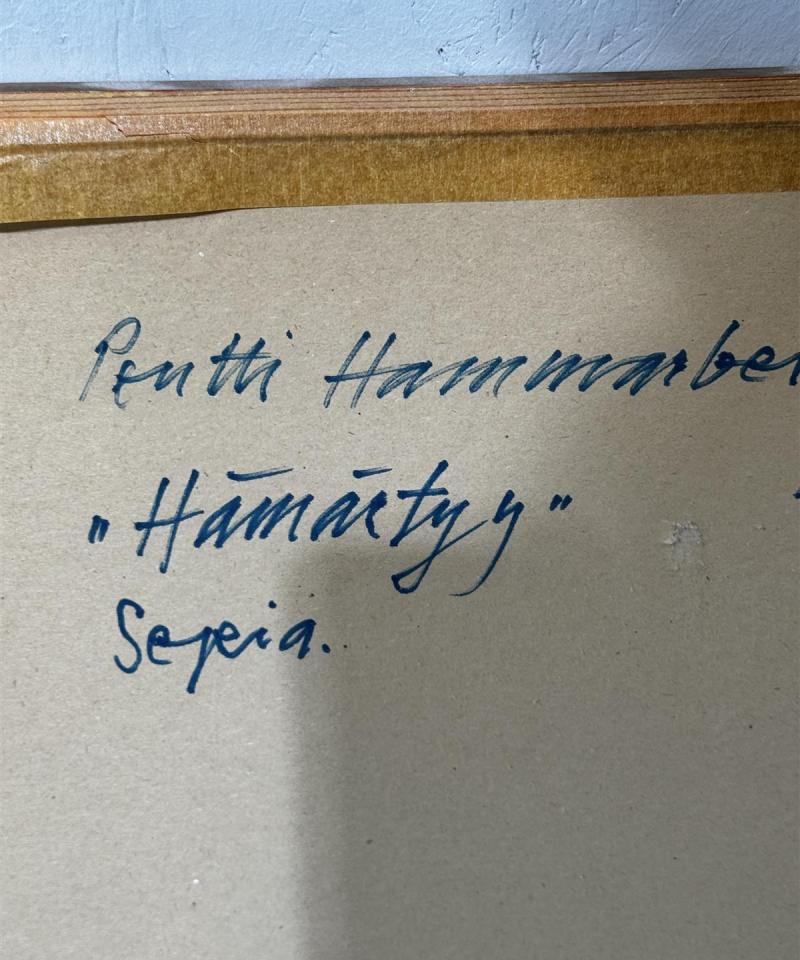 Pentti Hammarber
"Hämärtyy"
Sepia.